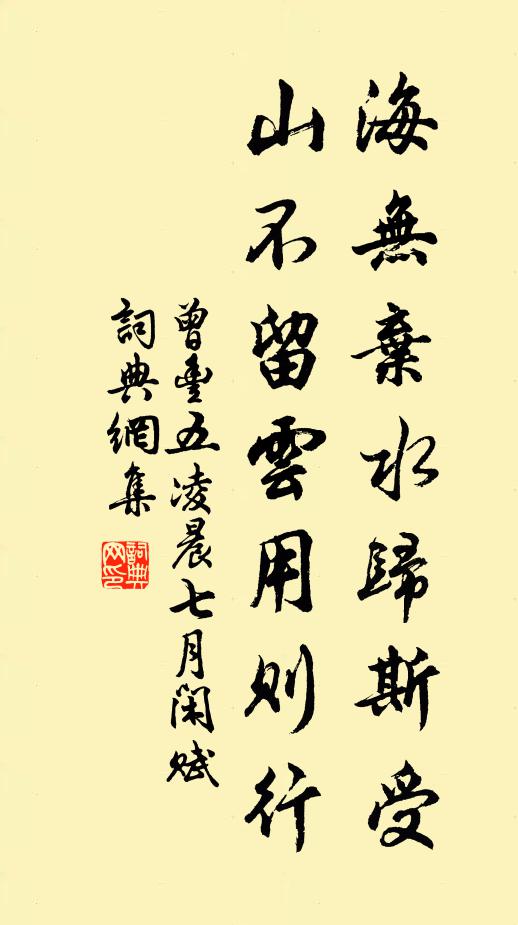 海無棄水歸斯受
山不留雲用則行
曾豐五凌晨七月閑賦
詞典網集
詞典網印